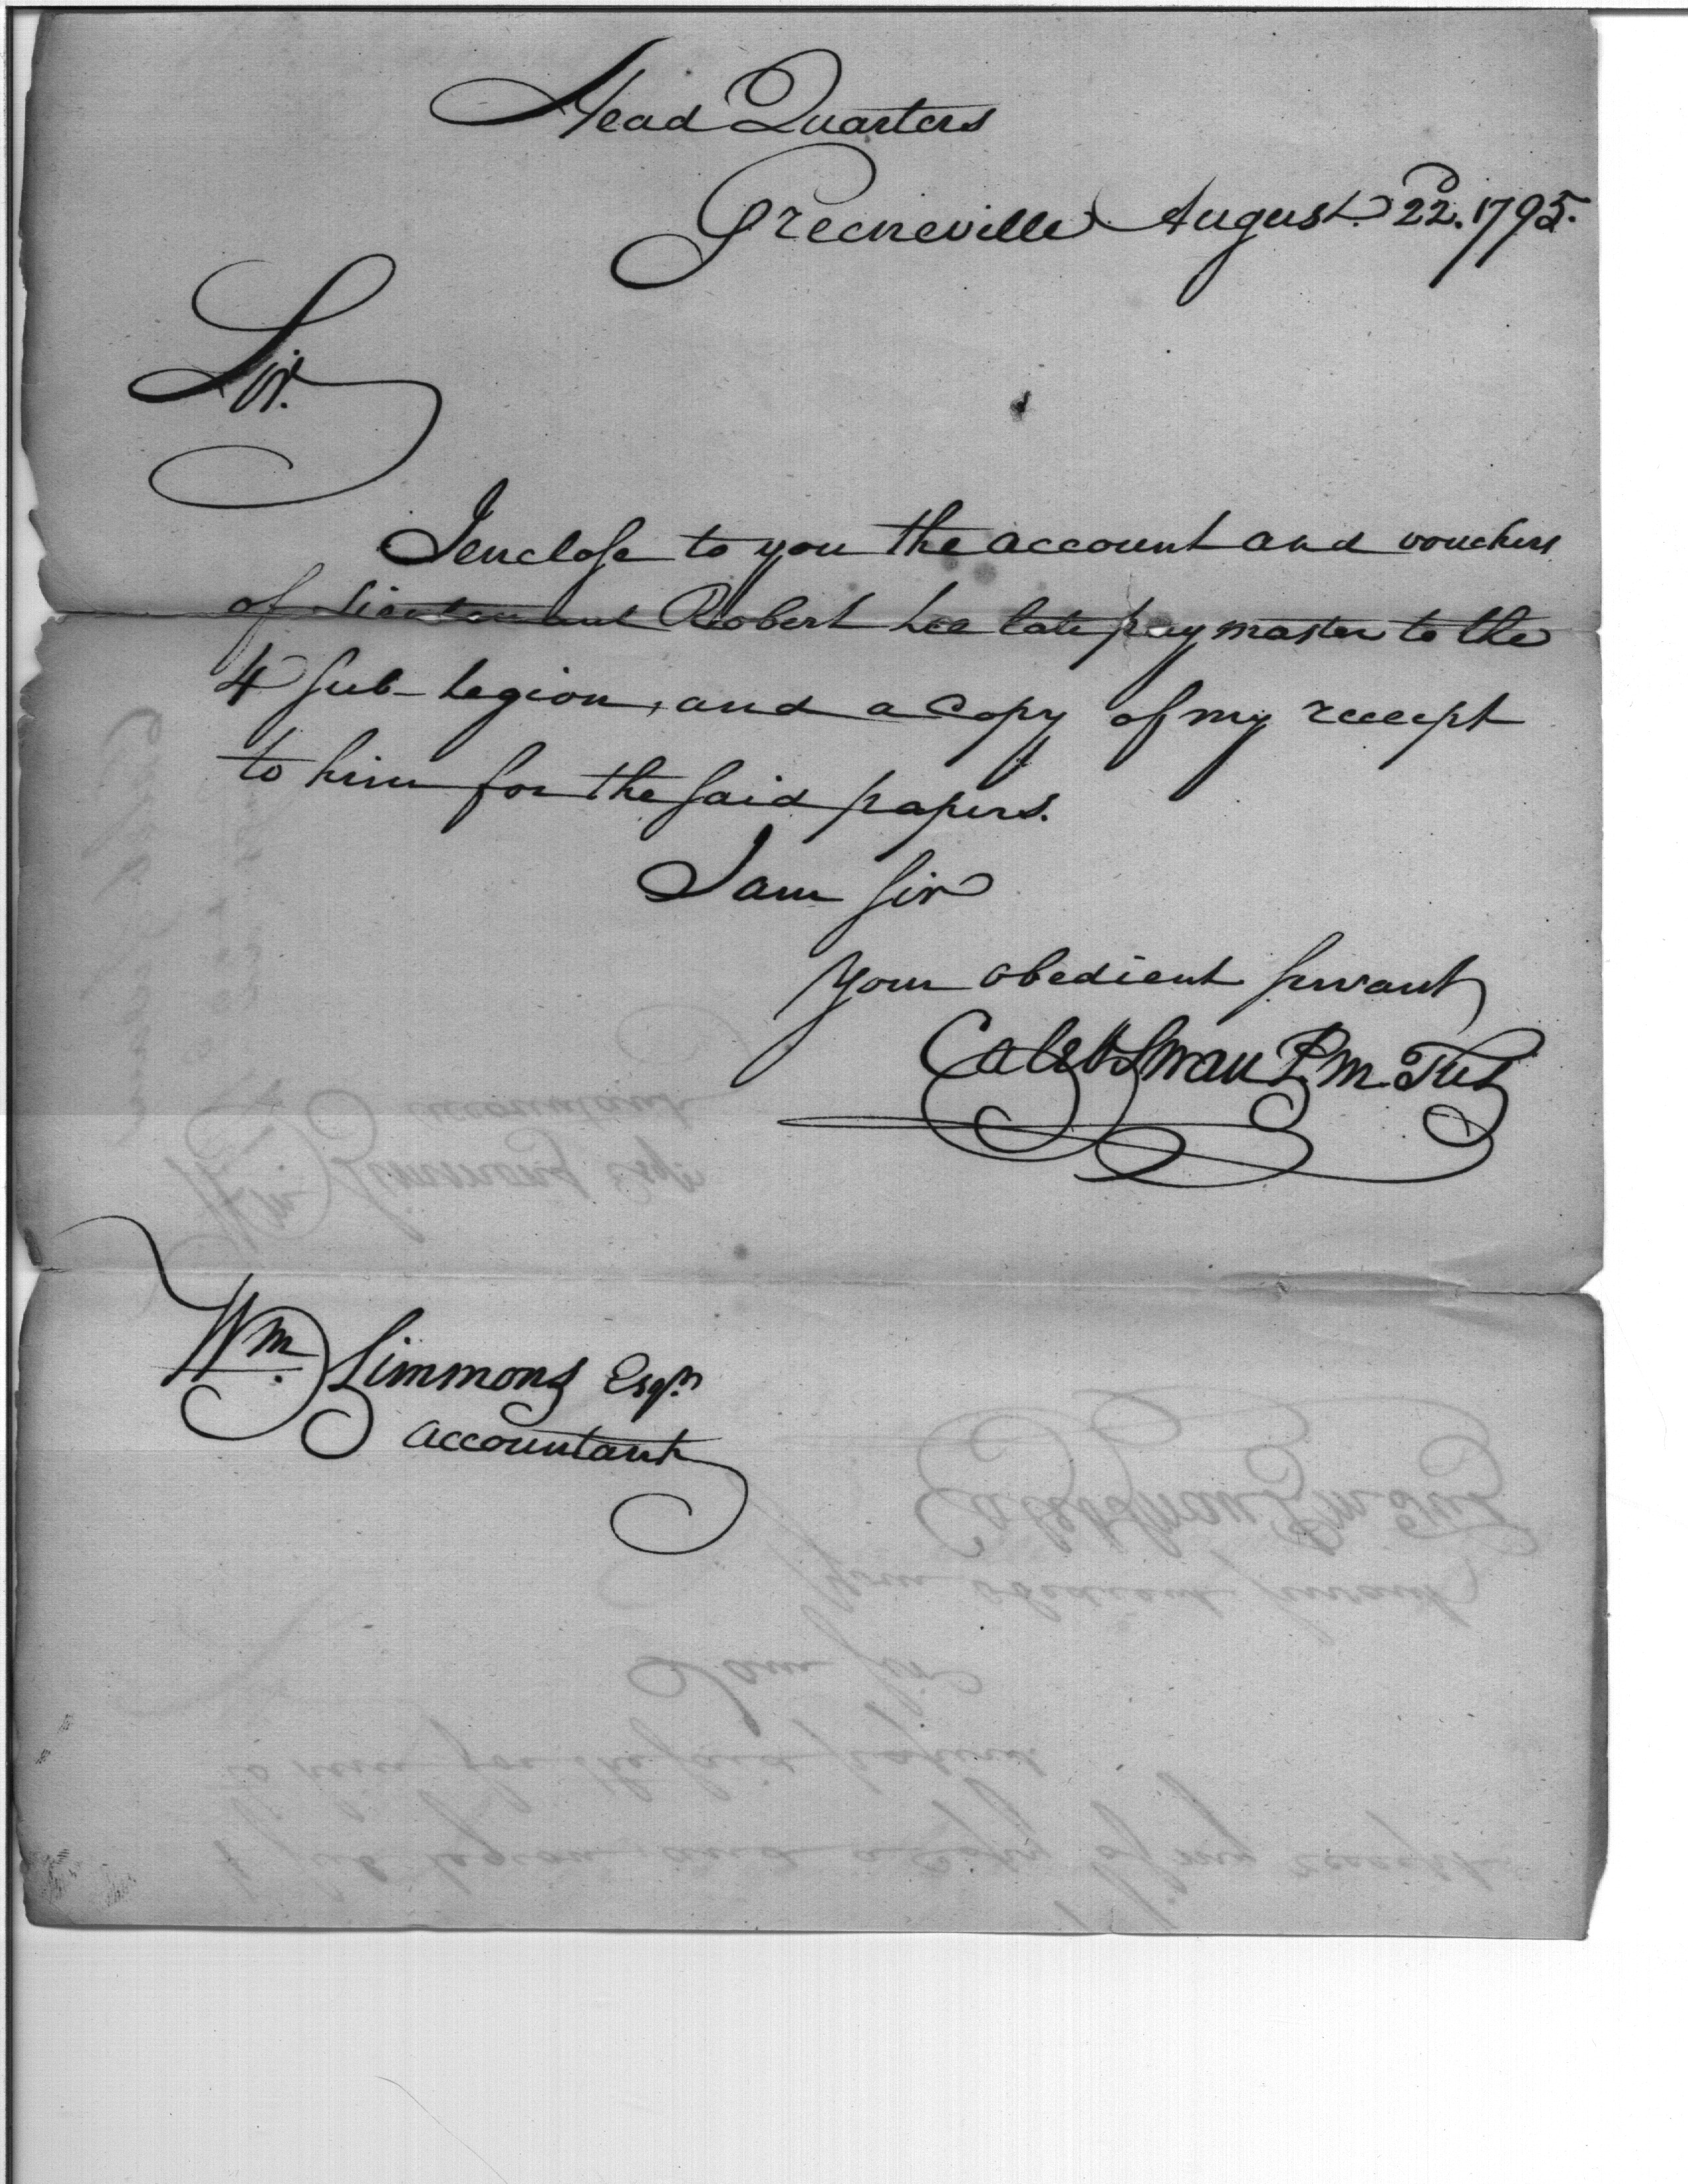 Head Quarters
Greeneville August 22d. 1795.
Sir.
I enclose to you the account and vouchers
of Lieutenant Robert Lee late paymaster to the
4 Sub-Legion, and a copy of my receipt
to him for the said papers.
I am Sir
your obedient servant
Caleb Swan P.M. Tus
Wm. Simmons Esqr.
accountant